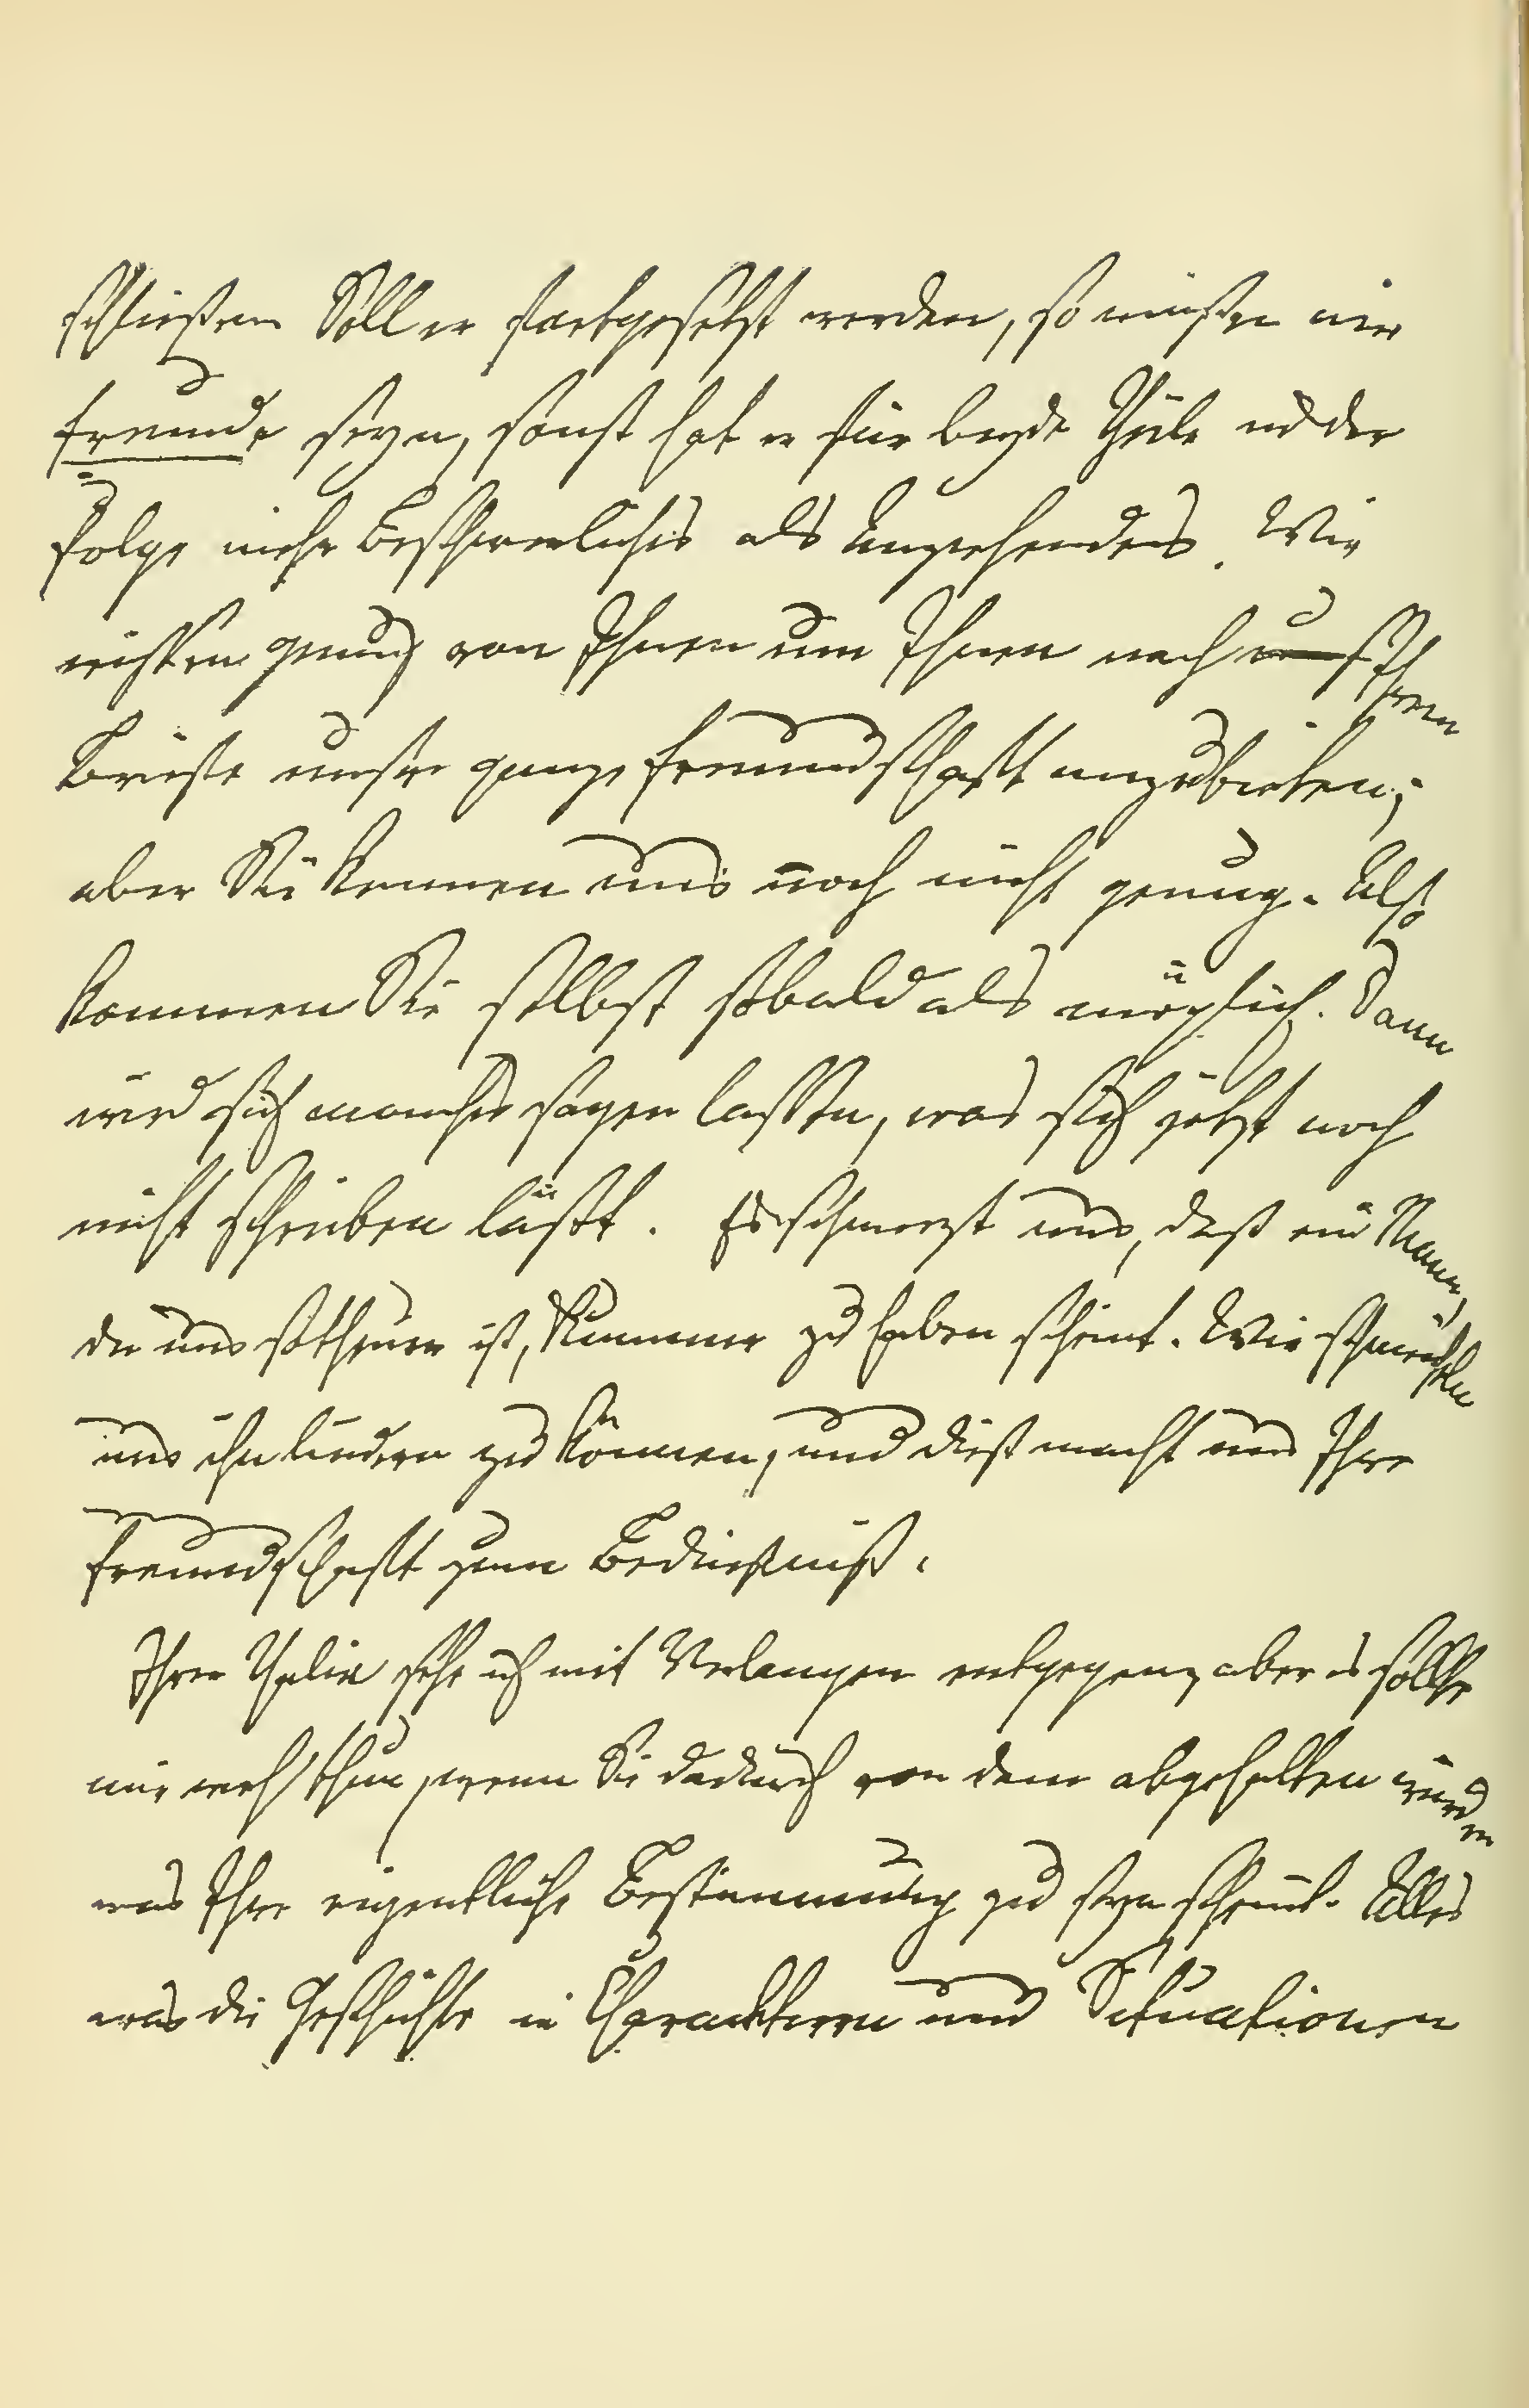 schließen. Soll er fortgesetzt werden, so müssen wir
Freunde seyn, sonst hat er für beyde Theile in der
Folge mehr Beschwerliches als Anziehendes. Wir
wissen genug von Ihnen um Ihnen nach Ihrem
Briefe unsre ganze Freundschafft anzubieten;
aber Sie kennen uns noch nicht genug. Also
kommen Sie selbst sobald als möglich. Dann
wird sich manches sagen lassen, was sich jetzt noch
nicht schreiben läßt. Es schmerzt uns, daß ein Mann,
der uns so theuer ist, Kummer zu haben scheint. Wir schmeicheln
uns ihn lindern zu können, und dieß macht uns Ihre
Freundschafft zum Bedürfniß.
Ihrer Thalia sehe ich mit Verlangen entgegen, aber es sollte
mir weh thun, wenn Sie dadurch von dem abgehalten würden
was Ihre eigentliche Bestimmung zu seyn scheint. Alles
was die Geschichte in Charackteren und Situationen